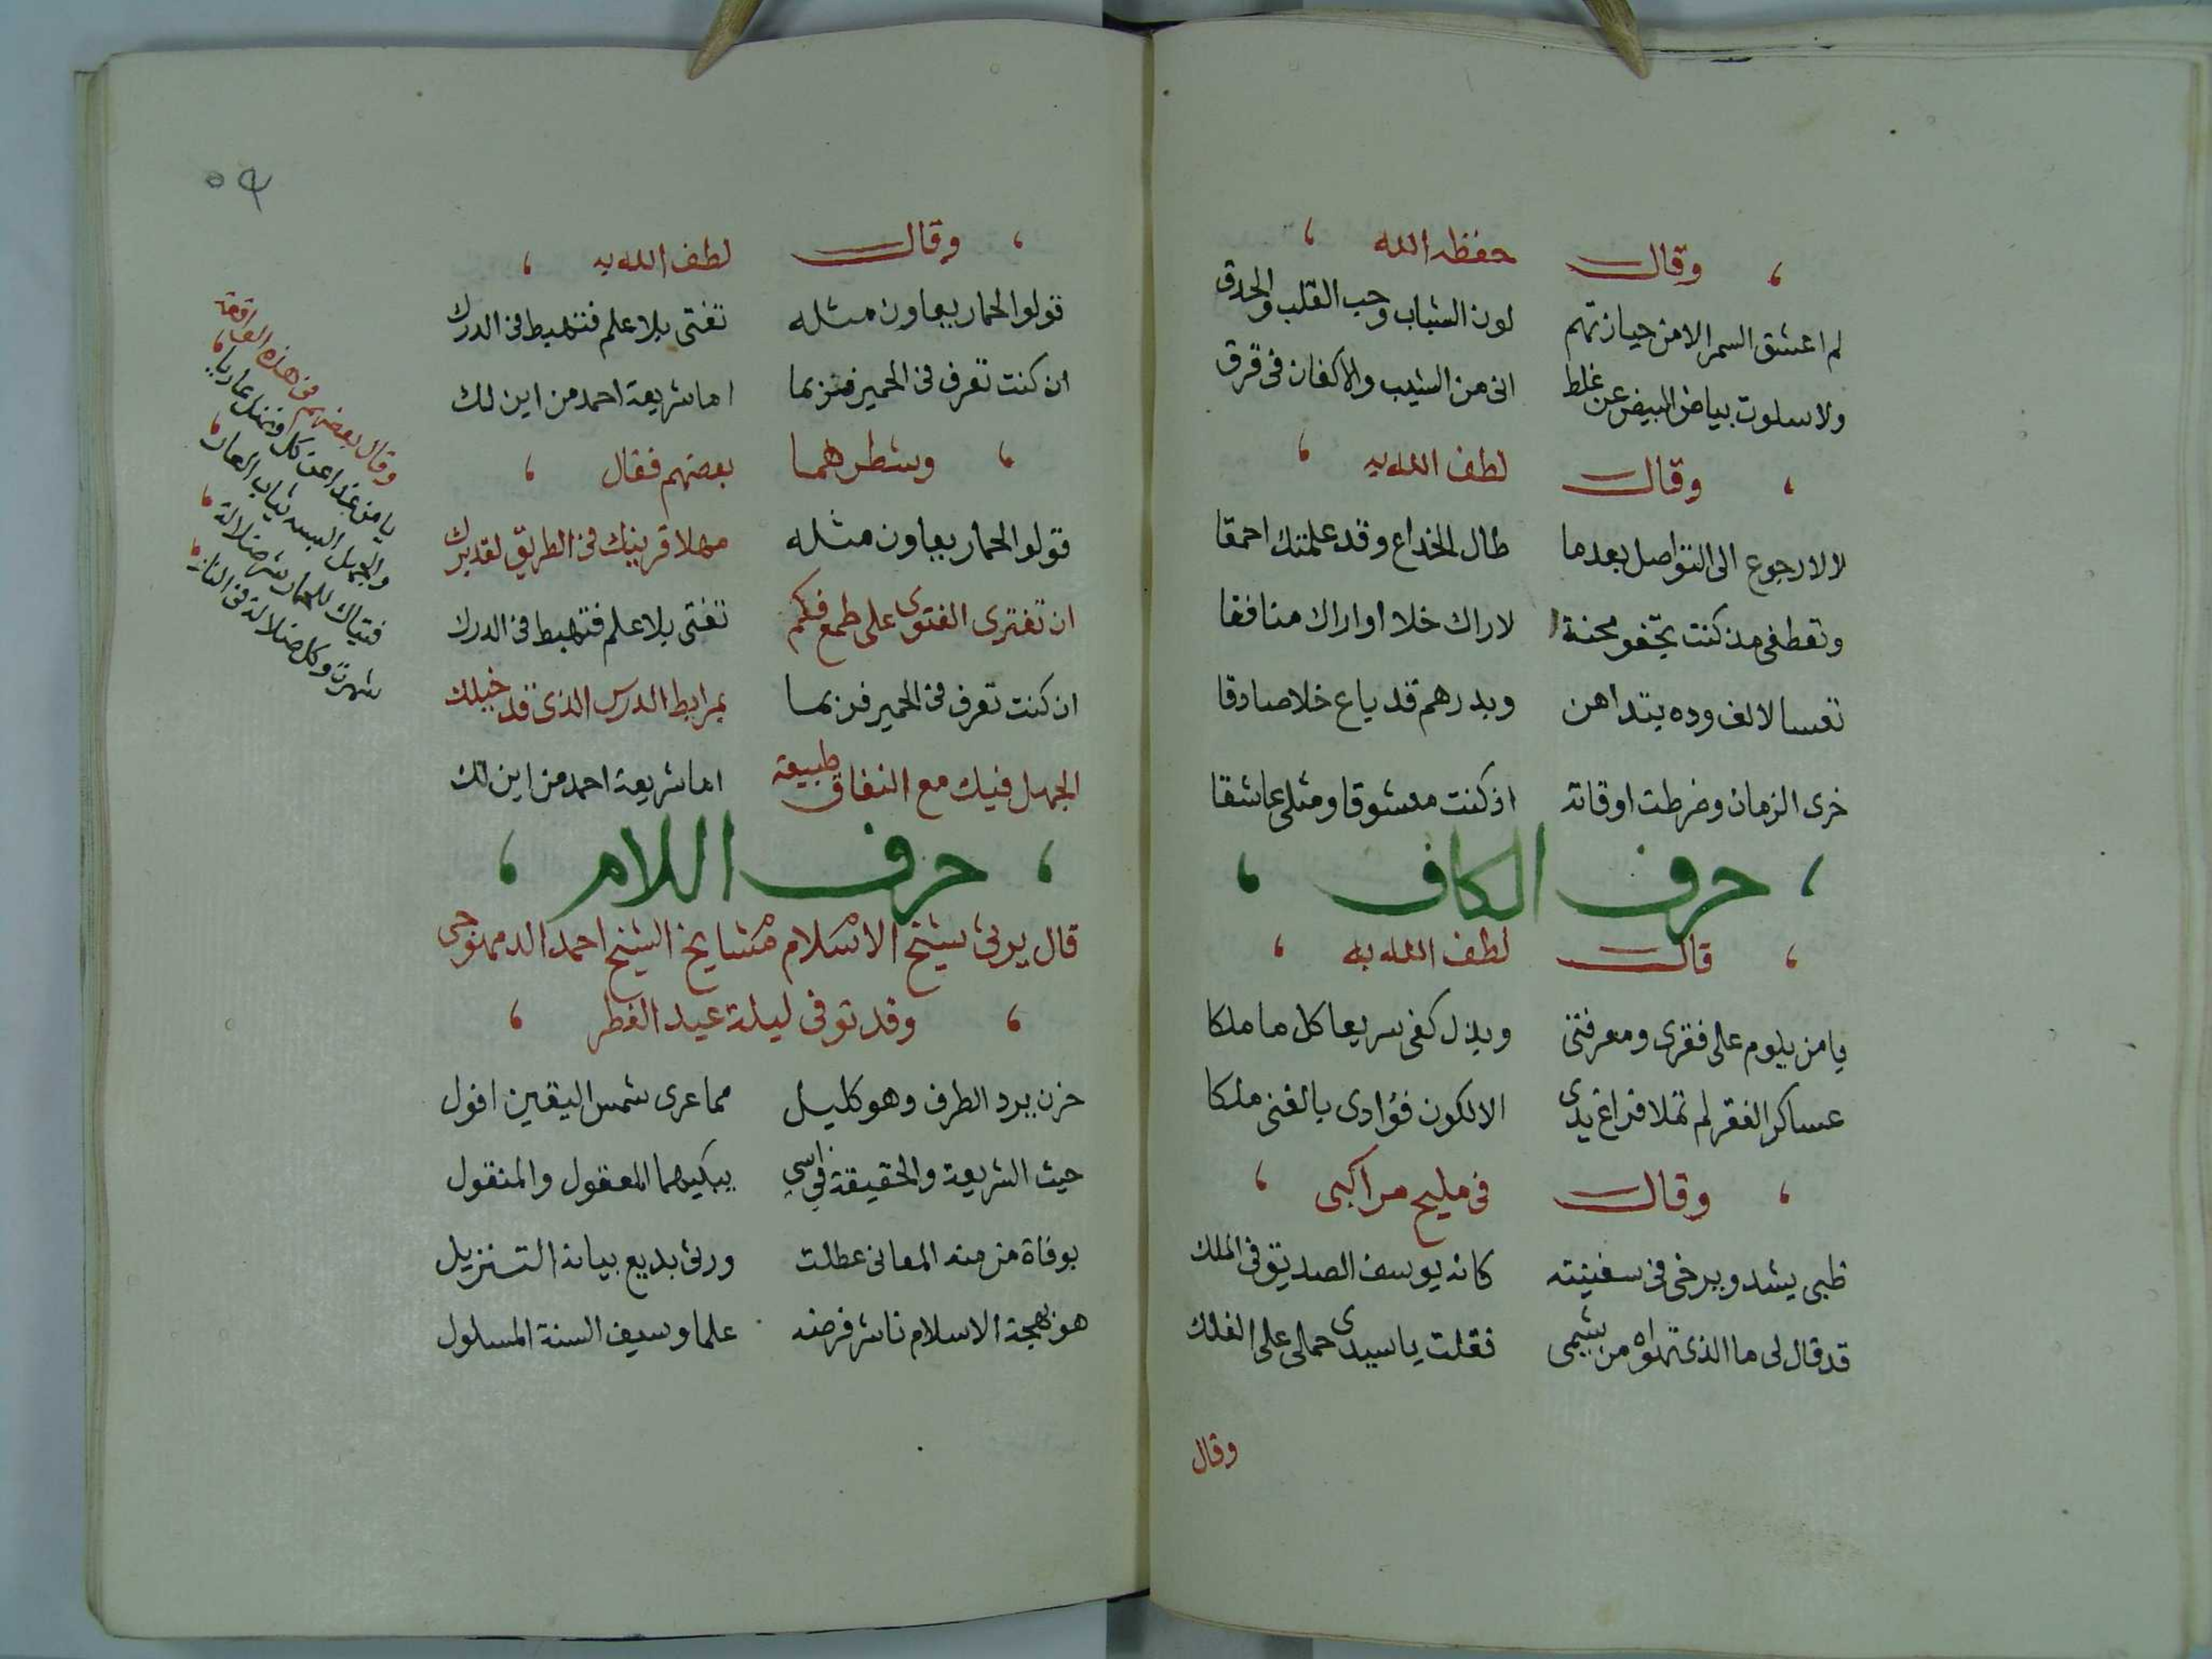 وقال حفظه الله
لم اعشق السمر الا من حيازتهم لون الشباب وحب القلب والحدق
ولا سلوت بياض البيض عن غلط انى من الشيب والاكفان فى فرق
وقال لطف الله به
لا لا رجوع الى التواصل بعدما طال الخداع وقد علمتك احمقا
وتعطفى مذ كنت تجفو محنة لا راك خلا او اراك منافقا
تعسا لالف وده بتداهن وبدرهم قد باع خلا صادقا
خرى الزمان وضرطت اوقاته اذ كنت معشوقا ومثلى عاشقا
حرف الكاف
قال لطف الله به
يا من يلوم على فقرى ومعرفتى وبذل كفى سريعا كل ما ملكا
عساكر الفقر لم تملا فراغ يدى الا لكون فؤادى بالغنى ملكا
وقال فى مليح مراكبى
ظبى يشد ويرخى فى سفينته كانه يوسف الصديق فى الملك
قد قال لى ما الذى تهواه من شيمى فقلت يا سيدى حمالى على الفلك
وقال
٥٩
وقال لطف الله به
قولوا لحمار يعاون مثله تفتى بلا علم فتهبط فى الدرك
ان كنت تعرف فى الحمير فربما اما شريعة احمد من اين لك
وشطرهما بعضهم فقال
قولوا لحمار يعاون مثله مهلا قرينك فى الطريق لقد برك
ان تفترى الفتوى على طمع فكم تفتى بلا علم فتهبط فى الدرك
ان كنت تعرف فى الحمير فربما بمرابط الدرس الذى قد خبلك
الجهل فيك مع النفاق طبيعة اما شريعة احمد من اين لك
حرف اللام
قال يرثى شيخ الاسلام مشايخ الشيخ احمد الدمنهوجى
وقد توفى ليلة عيد الفطر
حزن يرد الطرف وهو كليل مما عرى شمس اليقين افول
حيث الشريعة والحقيقة فى اسى يبكيهما المعقول والمنقول
بوفاة من منه المعانى عطلت ورثى بديع بيانه التنزيل
هو بهجة الاسلام ناشر فرضه علما وسيف السنة المسلول
وقال بعضهم فى هذه الواقعة
يا من غدا عن كل فضل عاريا
والجهل البسه ثياب العار
فتياك للحمار شر ضلالة
شهرت وكل ضلالة فى النار